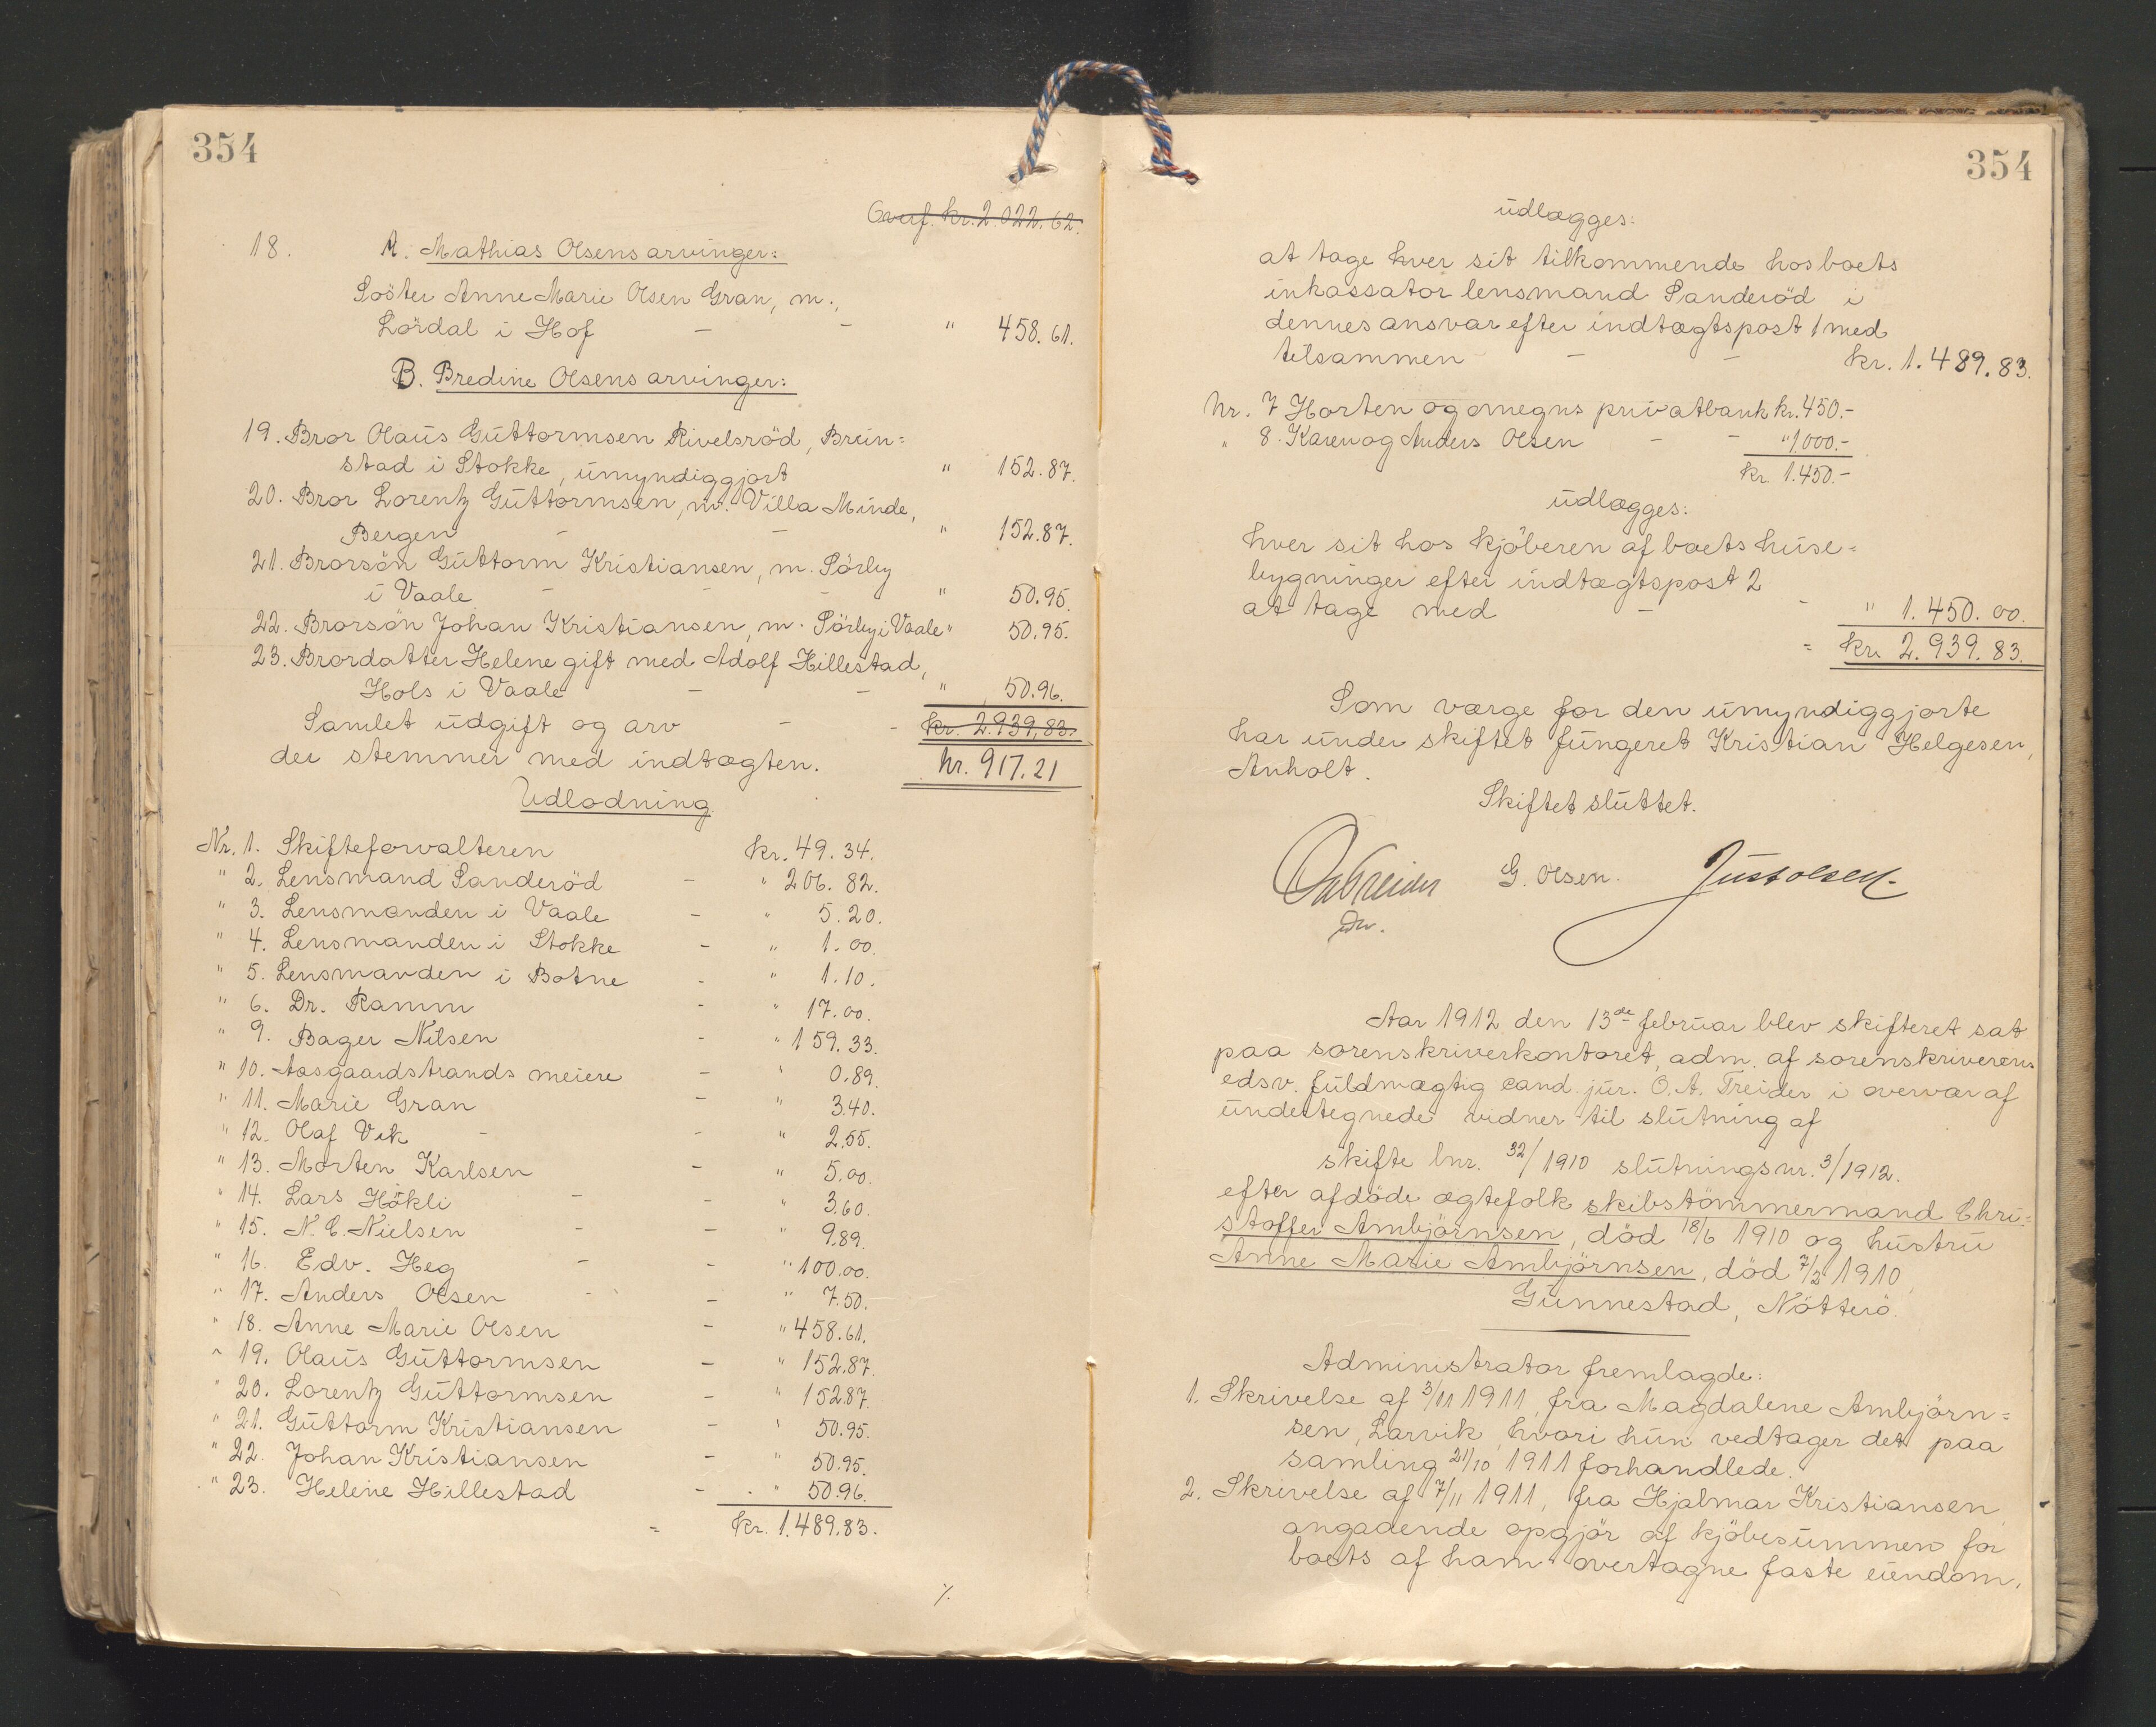 354
Overf. kr. 2.022.62.
18. A. Mathias Olsens arvinger:
Söster Anne Marie Olsen Gran, m.,
Lördal i Hof - - " 458.61.
B. Bredine Olsens arvinger:
19. Bror Olaus Guttormsen Rivelsröd, Brein=
stad i Stokke, umyndiggjort " 152.87.
20. Bror Lorentz Guttormsen, m. Villa Minde,
Bergen - - " 152.87.
21. Brorsön Guttorm Kristiansen, m. Sörby
i Vaale - - - " 50.95.
22. Brorsön Johan Kristiansen, m. Sörby i Vaale " 50.95.
23. Brordatter Helene gift med Adolf Hillestad,
Hols i Vaale - - " 50.96.
Samlet udgift og arv - - kr. 2.939.83.
der stemmer med indtægten. kr. 917.21
Udlodning.
Nr. 1. Skifteforvalteren kr. 49.34.
" 2. Lensmand Sanderöd - " 206.82.
" 3. Lensmanden i Vaale - " 5.20.
" 4. Lensmanden i Stokke - " 1.00.
" 5. Lensmanden i Botne - " 1.10.
" 6. Dr. Ramm - " 17.00.
" 9. Bager Nilsen - " 159.33.
" 10. Aasgaardstrands meiere - " 0.89.
" 11. Marie Gran - " 3.40.
" 12. Olaf Vik - - " 2.55.
" 13. Morten Karlsen - " 5.00.
" 14. Lars Hökli - - " 3.60.
" 15. N. C. Nielsen - - " 9.89.
" 16. Edv. Heg - - " 100.00.
" 17. Anders Olsen - - " 7.50.
" 18. Anne Marie Olsen - " 458.61.
" 19. Olaus Guttormsen - " 152.87.
" 20. Lorentz Guttormsen - " 152.87.
" 21. Guttorm Kristiansen - " 50.95.
" 22. Johan Kristiansen - " 50.95.
" 23. Helene Hillestad - " 50.96.
= kr. 1.489.83.
./.
354
udlægges:
at tage hver sit tilkommende hos boets
inkassator lensmand Sanderöd i
dennes ansvar efter indtægtspost 1 med
tilsammen - - kr. 1.489.83.
Nr. 7 Horten og omegns privatbank kr. 450.-
" 8. Karen og Anders Olsen - - " 1000.-
kr. 1.450.-
udlægges:
hver sit hos kjöberen af boets huse=
bygninger efter indtægtspost 2
at tage med - - " 1.450.00.
= kr. 2.939.83.
Som værge for den umyndiggjorte
har under skiftet fungeret Kristian Helgesen,
Anholt.
Skiftet sluttet.
OATreider G. Olsen. Just Olsen.
Aar 1912 den 13de februar blev skifteret sat
paa sorenskriverkontoret, adm. af sorenskriverens
edsv. fuldmægtig cand. jur. O. A. Treider i overvær af
undertegnede vidner til slutning af
skifte lnr. 32/1910 slutningsnr. 3/1912.
efter afdöde ægtefolk skibstömmermand Chri=
stoffer Ambjörnsen, död 18/6 1910 og hustru
Anne Marie Ambjörnsen, död 7/2 1910,
Gunnestad, Nötterö.
Administrator fremlagde:
1. Skrivelse af 3/11 1911, fra Magdalene Ambjörn=
sen, Larvik, hvori hun vedtager det paa
samling 21/10 1911 forhandlede.
2. Skrivelse af 7/11 1911, fra Hjalmar Kristiansen,
angaaende opgjör af kjöbesummen for
boets af ham overtagne faste eiendom,